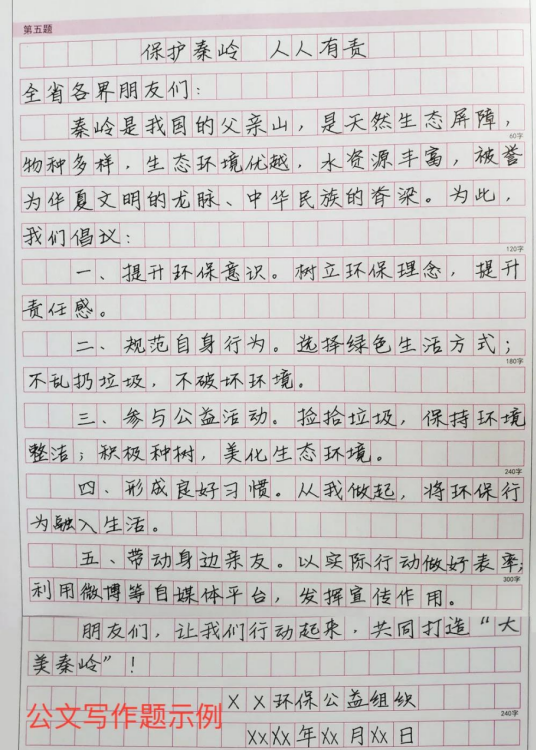 第五题
保护秦岭 人人有责
全省各界朋友们:
秦岭是我国的父亲山,是天然生态屏障,
60字
物种多样,生态环境优越,水资源丰富,被誉
为华夏文明的龙脉、中华民族的脊梁。为此,
我们倡议:
120字
一、提升环保意识。树立环保理念,提升
责任感。
二、规范自身行为。选择绿色生活方式;
180字
不乱扔垃圾,不破坏环境。
三、参与公益活动。捡拾垃圾,保持环境
整洁;积极种树,美化生态环境。
240字
四、形成良好习惯。从我做起,将环保行
为融入生活。
五、带动身边亲友。以实际行动做好表率;
300字
利用微博等自媒体平台,发挥宣传作用。
朋友们,让我们行动起来,共同打造“大
美秦岭”!
XX环保公益组织
240字
公文写作题示例
XXXX年XX月XX日